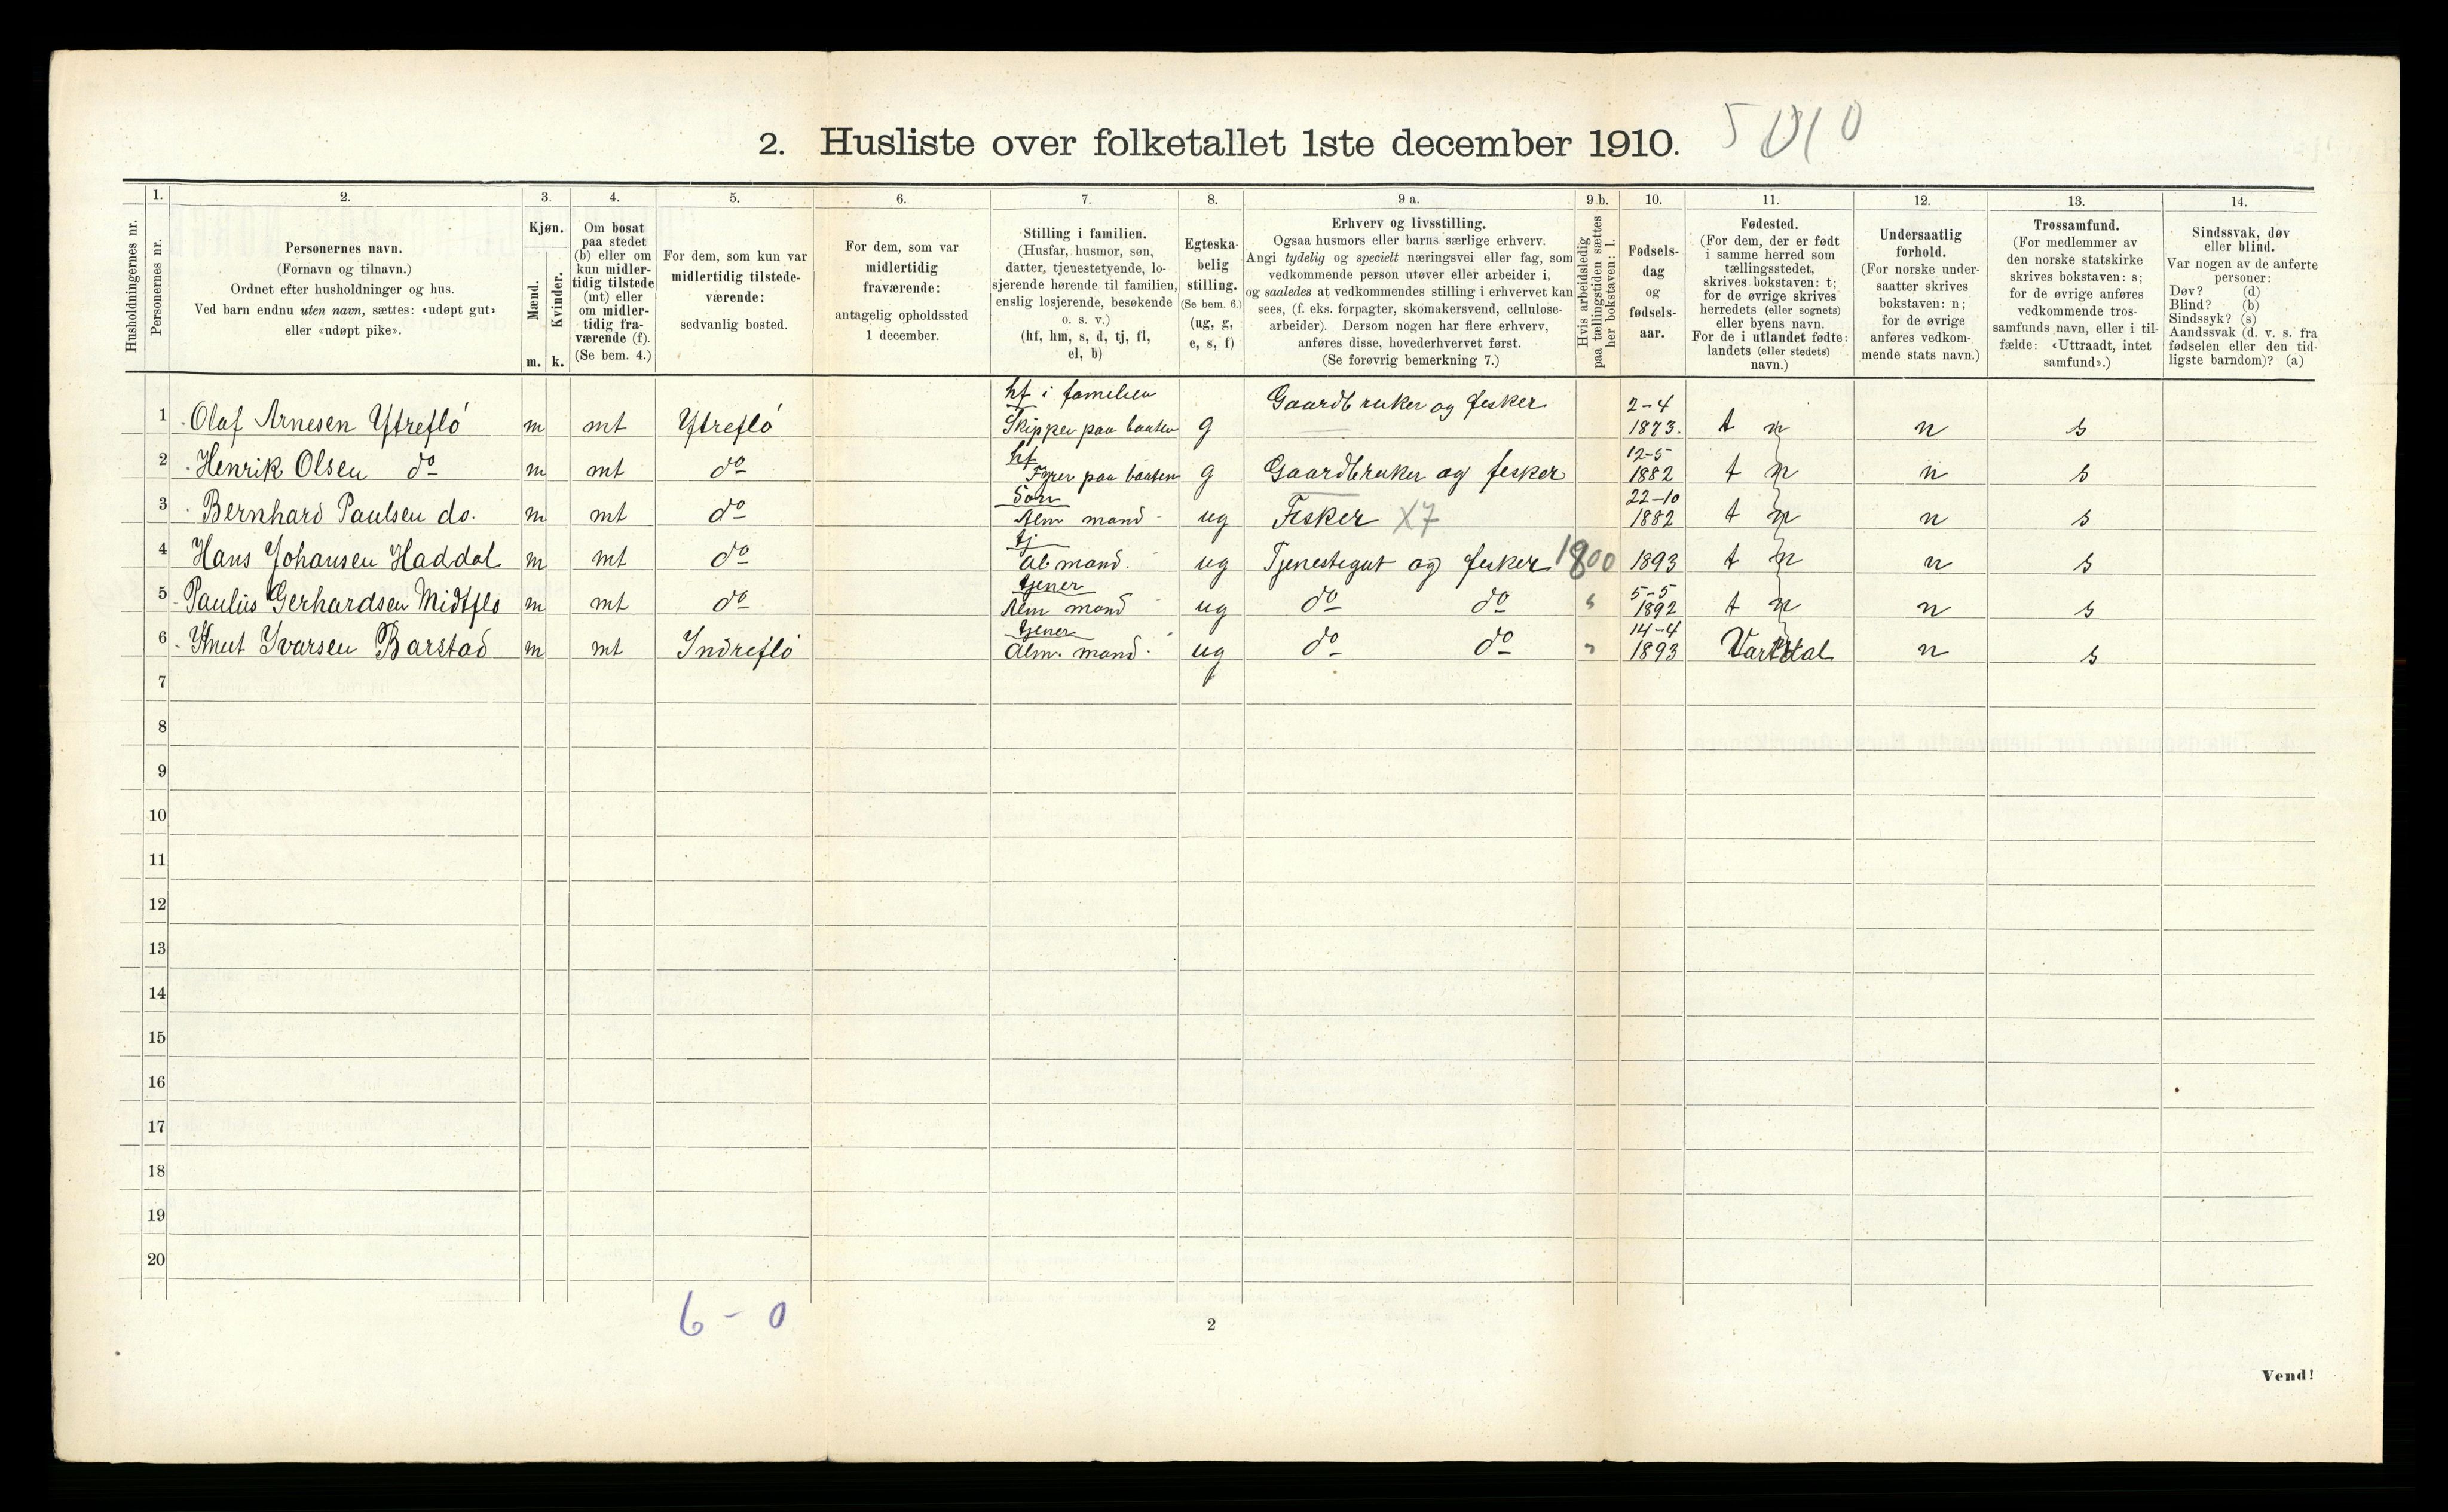 2. Husliste over folketallet 1ste december 1910. 5010
Husholdningernes nr.
1.
Personernes nr.
2.
Personernes navn.
(Fornavn og tilnavn.)
Ordnet efter husholdninger og hus.
Ved barn endnu uten navn, sættes: «udøpt gut»
eller «udøpt pike».
3.
Kjøn.
Mænd.
m.
Kvinder.
k.
4.
Om bosat
paa stedet
(b) eller om
kun midler-
tidig tilstede
(mt) eller
om midler-
tidig fra-
værende (f).
(Se bem. 4.)
5.
For dem, som kun var
midlertidig tilstede-
værende:
sedvanlig bosted.
6.
For dem, som var
midlertidig
fraværende:
antagelig opholdssted
1 december.
7.
Stilling i familien.
(Husfar, husmor, søn,
datter, tjenestetyende, lo-
sjerende hørende til familien,
enslig losjerende, besøkende
o. s. v.)
(hf, hm, s, d, tj, fl,
el, b)
8.
Egteska-
belig
stilling.
(Se bem. 6.)
(ug, g,
e, s, f)
9 a.
Erhverv og livsstilling.
Ogsaa husmors eller barns særlige erhverv.
Angi tydelig og specielt næringsvei eller fag, som
vedkommende person utøver eller arbeider i,
og saaledes at vedkommendes stilling i erhvervet kan
sees, (f. eks. forpagter, skomakersvend, cellulose-
arbeider). Dersom nogen har flere erhverv,
anføres disse, hovederhvervet først.
(Se forøvrig bemerkning 7.)
9 b.
Hvis arbeidsledig
paa tællingstiden sættes
her bokstaven: l.
10.
Fødsels-
dag
og
fødsels-
aar.
11.
Fødested.
(For dem, der er født
i samme herred som
tællingsstedet,
skrives bokstaven: t;
for de øvrige skrives
herredets (eller sognets)
eller byens navn.
For de i utlandet fødte:
landets (eller stedets)
navn.)
12.
Undersaatlig
forhold.
(For norske under-
saatter skrives
bokstaven: n;
for de øvrige
anføres vedkom-
mende stats navn.)
13.
Trossamfund.
(For medlemmer av
den norske statskirke
skrives bokstaven: s;
for de øvrige anføres
vedkommende tros-
samfunds navn, eller i til-
fælde: «Uttraadt, intet
samfund».)
14.
Sindssvak, døv
eller blind.
Var nogen av de anførte
personer:
Døv? (d)
Blind? (b)
Sindssyk? (s)
Aandssvak (d. v. s. fra
fødselen eller den tid-
ligste barndom)? (a)
hf i familien Gaardbruker og fesker 2-4
1 Olaf Arnesen Ytrefló m mt Ytrefló Skipper paa baaten g 1873. t n n s
hf 12-5
2 Henrik Olsen do m mt do Fyrer paa baaten g Gaardbruker og fesker 1882 t n n s
Søn 22-10
3 Bernhard Paulsen do. m mt do Alm mand ug Fesker X7 1882 t n n s
tj
4 Hans Johansen Haddal m mt do Al mand. ug Tjenestegut og fesker 1800 1893 t n n s
tjener 5-5
5 Paulus Gerhardsen Midtflo m mt do Alm mand ug do do " 1892 t n n s
tjener 14-4
6 Knut Ivarsen Barstad m mt Indrefló Alm. mand. ug do do " 1893 Vartdal n s
7
8
9
10
11
12
13
14
15
16
17
18
19
20
6 - 0
2
Vend!